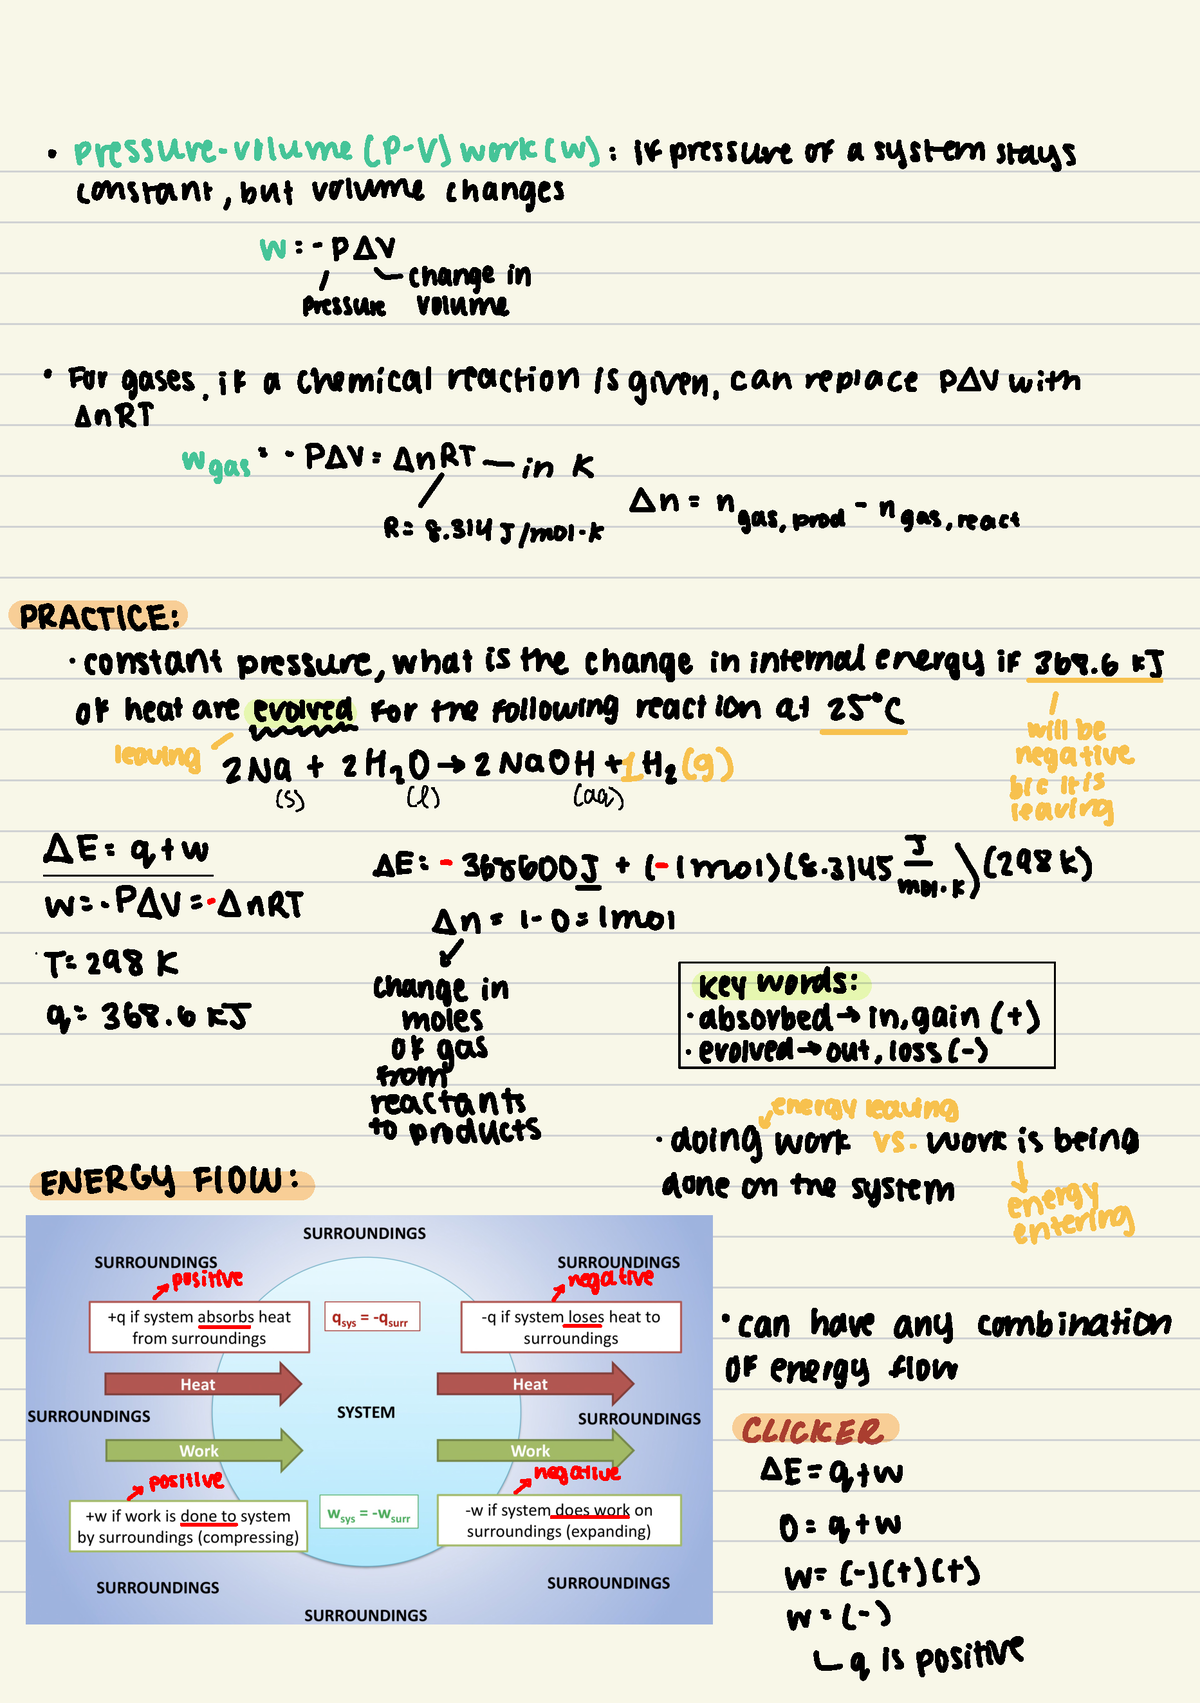 • pressure-volume (P-V) work (w): if pressure of a system stays
constant, but volume changes
w = -PΔV
change in
pressure volume
• For gases, if a chemical reaction is given, can replace PΔV with
ΔnRT
wgas = -PΔV = ΔnRT — in K
R = 8.314 J/mol·K
Δn = n gas, prod - n gas, react
PRACTICE:
• constant pressure, what is the change in internal energy if 368.6 kJ
of heat are evolved for the following reaction at 25°C
leaving
will be
negative
b/c it is
leaving
2Na + 2H₂O → 2NaOH + 1H₂(g)
(s) (l) (aq)
ΔE = q + w
w = -PΔV = -ΔnRT
T = 298 K
q = 368.6 kJ
ΔE = -368600J + (-1mol)(8.3145 J/mol·K)(298K)
Δn = 1 - 0 = 1mol
change in
moles
of gas
from
reactants
to products
key words:
• absorbed → in, gain (+)
• evolved → out, loss (-)
energy leaving
• doing work vs. work is being
done on the system
energy
entering
ENERGY FLOW:
SURROUNDINGS
SURROUNDINGS SURROUNDINGS
positive negative
+q if system absorbs heat
from surroundings
qsys = -qsurr
-q if system loses heat to
surroundings
Heat Heat
SURROUNDINGS SYSTEM SURROUNDINGS
Work Work
positive negative
+w if work is done to system
by surroundings (compressing)
wsys = -wsurr
-w if system does work on
surroundings (expanding)
SURROUNDINGS SURROUNDINGS
SURROUNDINGS
• can have any combination
of energy flow
CLICKER
ΔE = q + w
0 = q + w
w = (-)(+)(+)
w = (-)
q is positive